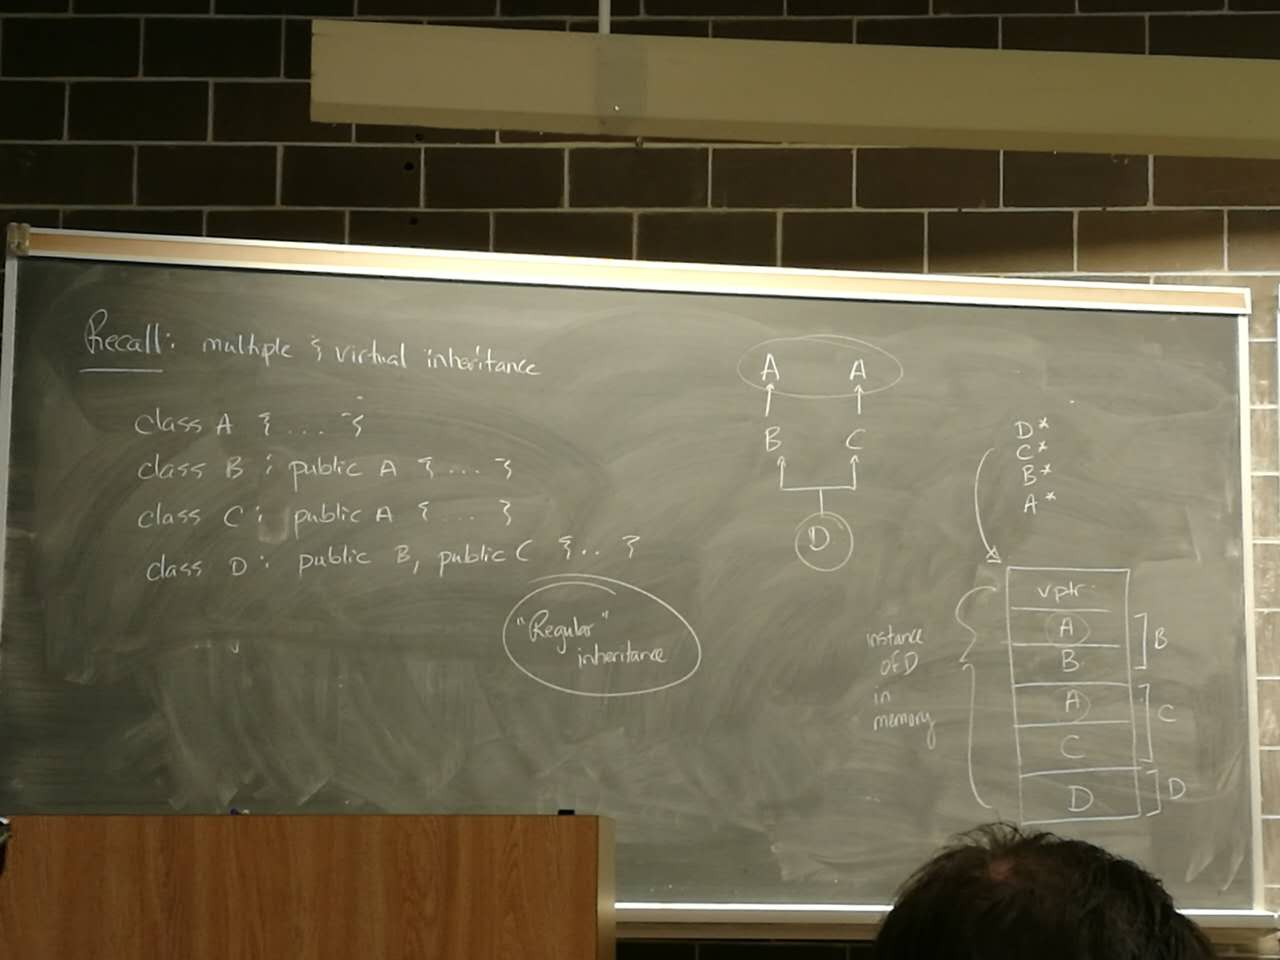 Recall: multiple & virtual inheritance
class A { ... }
class B : public A { ... }
class C : public A { ... }
class D : public B, public C { .. }
"Regular"
inheritance
A A
B C
D
D*
C*
B*
A*
instance
of D
in
memory
vptr
A
B
A
C
D
B
C
D